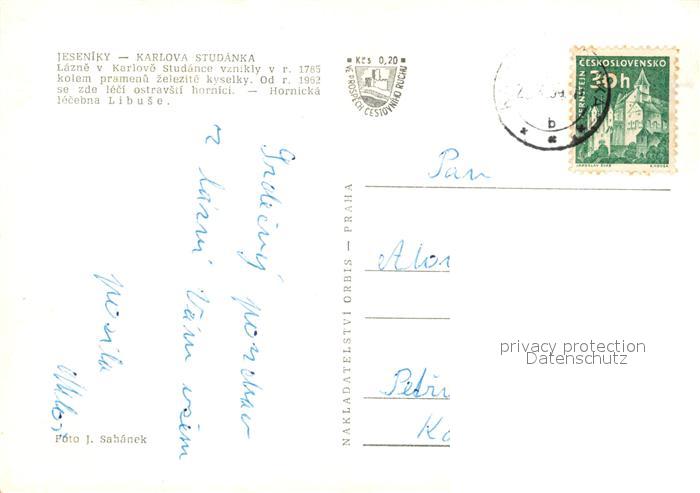 JESENÍKY — KARLOVA STUDÁNKA
Lázně v Karlově Studánce vznikly v r. 1785
kolem pramenů železité kyselky. Od r. 1962
se zde léčí ostravští horníci. — Hornická
léčebna Libuše.
Kčs 0,20
VE PROSPĚCH CESTOVNÍHO RUCHU
ČESKOSLOVENSKO
30h
PERNŠTEJN
b
Srdečný pozdrav
z lázní Vám všem
posílá
NAKLADATELSTVÍ ORBIS — PRAHA
Pan
Petři
privacy protection
Datenschutz
Foto J. Sahánek